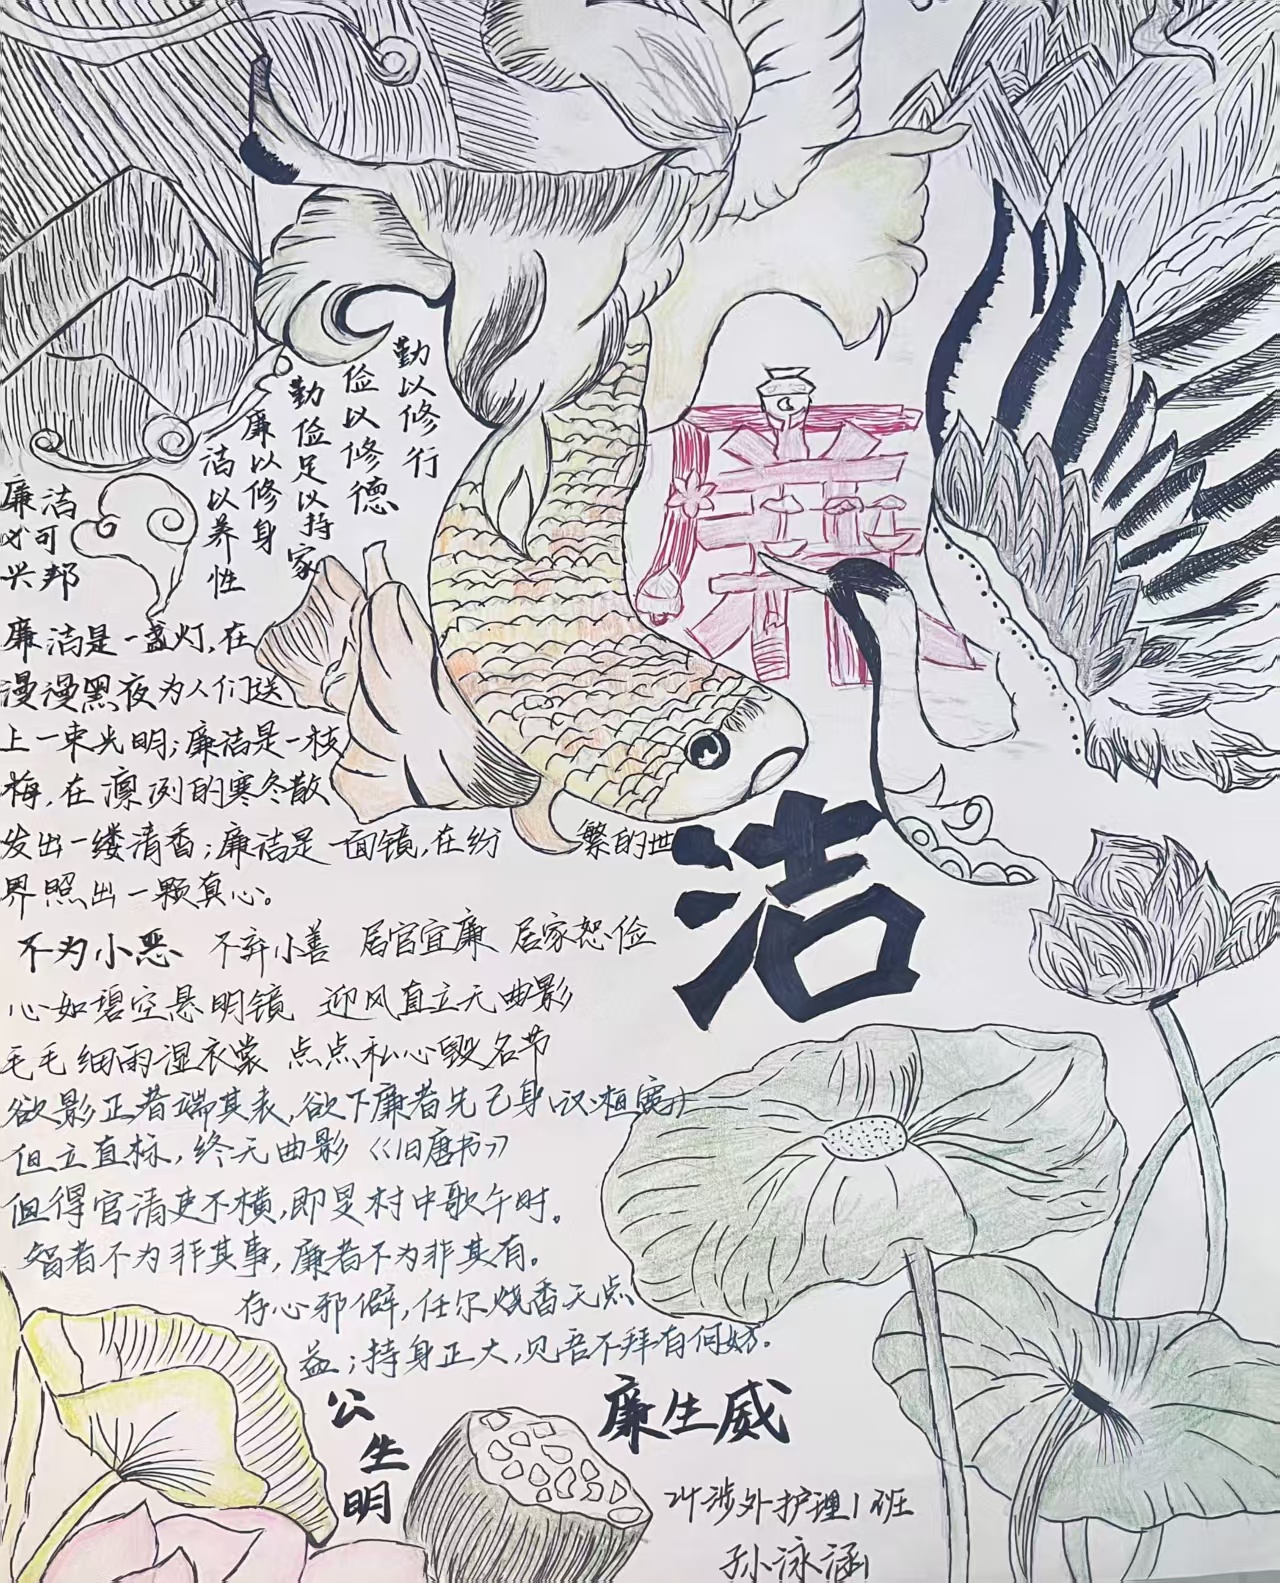 勤以修行
俭以修德
勤俭足以持家
廉以修身
洁以养性
廉洁
必可
兴邦
廉
洁
廉洁是一盏灯,在
漫漫黑夜为人们送
上一束光明;廉洁是一枝
梅,在凛冽的寒冬散
发出一缕清香;廉洁是一面镜,在纷繁的世
界照出一颗真心。
不为小恶 不弃小善 居官宜廉 居家恕俭
心如碧空悬明镜 迎风直立无曲影
毛毛细雨湿衣裳 点点私心毁名节
欲影正者端其表,欲下廉者先己身(汉·桓宽)
但立直标,终无曲影《旧唐书》
但得官清吏不横,即是村中歌午时。
智者不为非其事,廉者不为非其有。
存心邪僻,任尔烧香无点
益;持身正大,见吾不拜有何妨.
公生明
廉生威
24涉外护理1班
孙泳涵